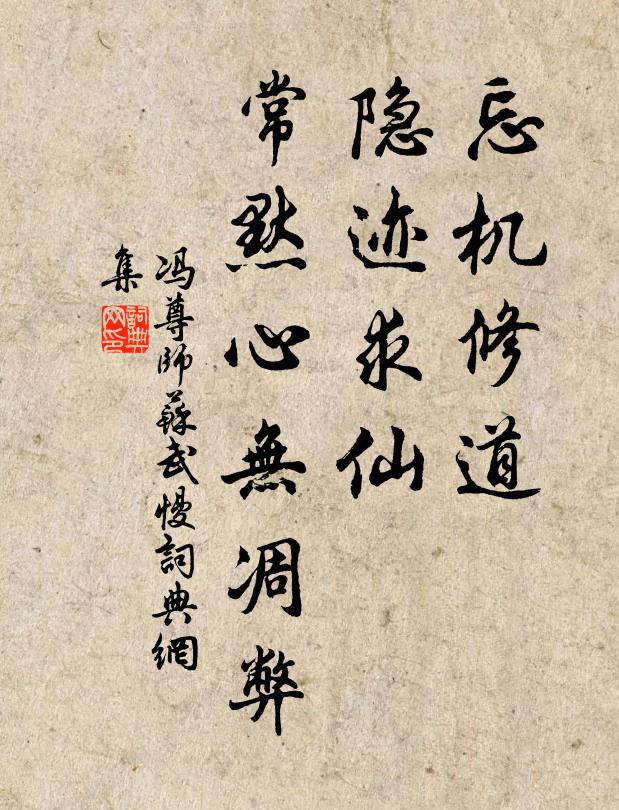 忘机修道
隐迹求仙
常黙心無凋弊
冯尊師蘇武慢詞典網
集
詞典
网印